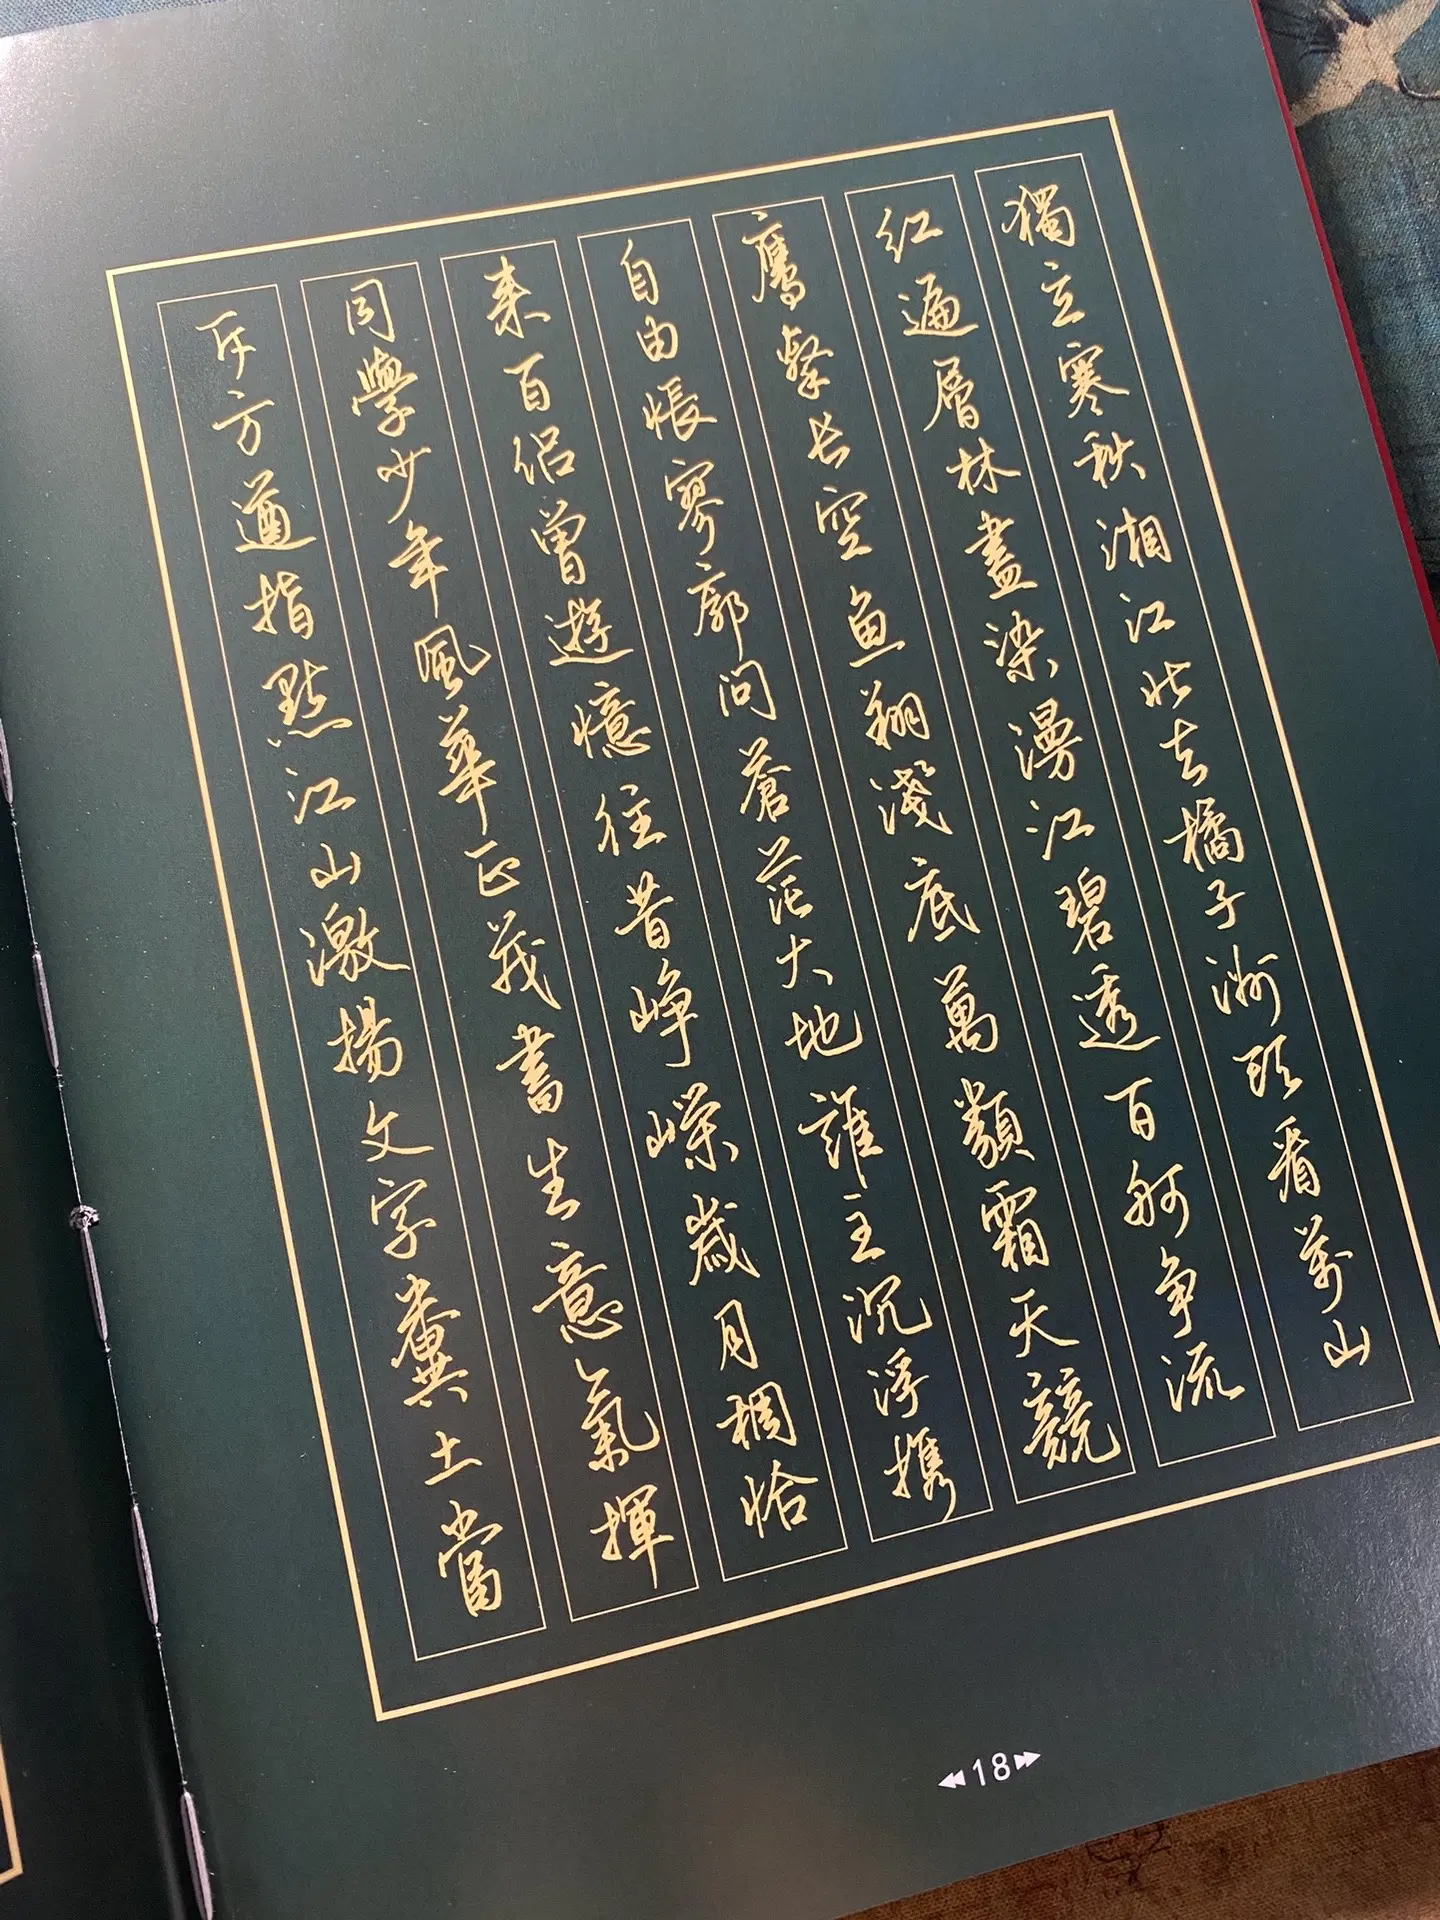 獨立寒秋湘江北去橘子洲頭看萬山
紅遍層林盡染漫江碧透百舸争流
鷹擊长空魚翔淺底萬類霜天競
自由悵寥廓問蒼茫大地誰主沉浮携
来百侣曾遊憶往昔峥嶸歲月稠恰
同學少年風華正茂書生意氣揮
斥方遒指點江山激揚文字糞土當
18